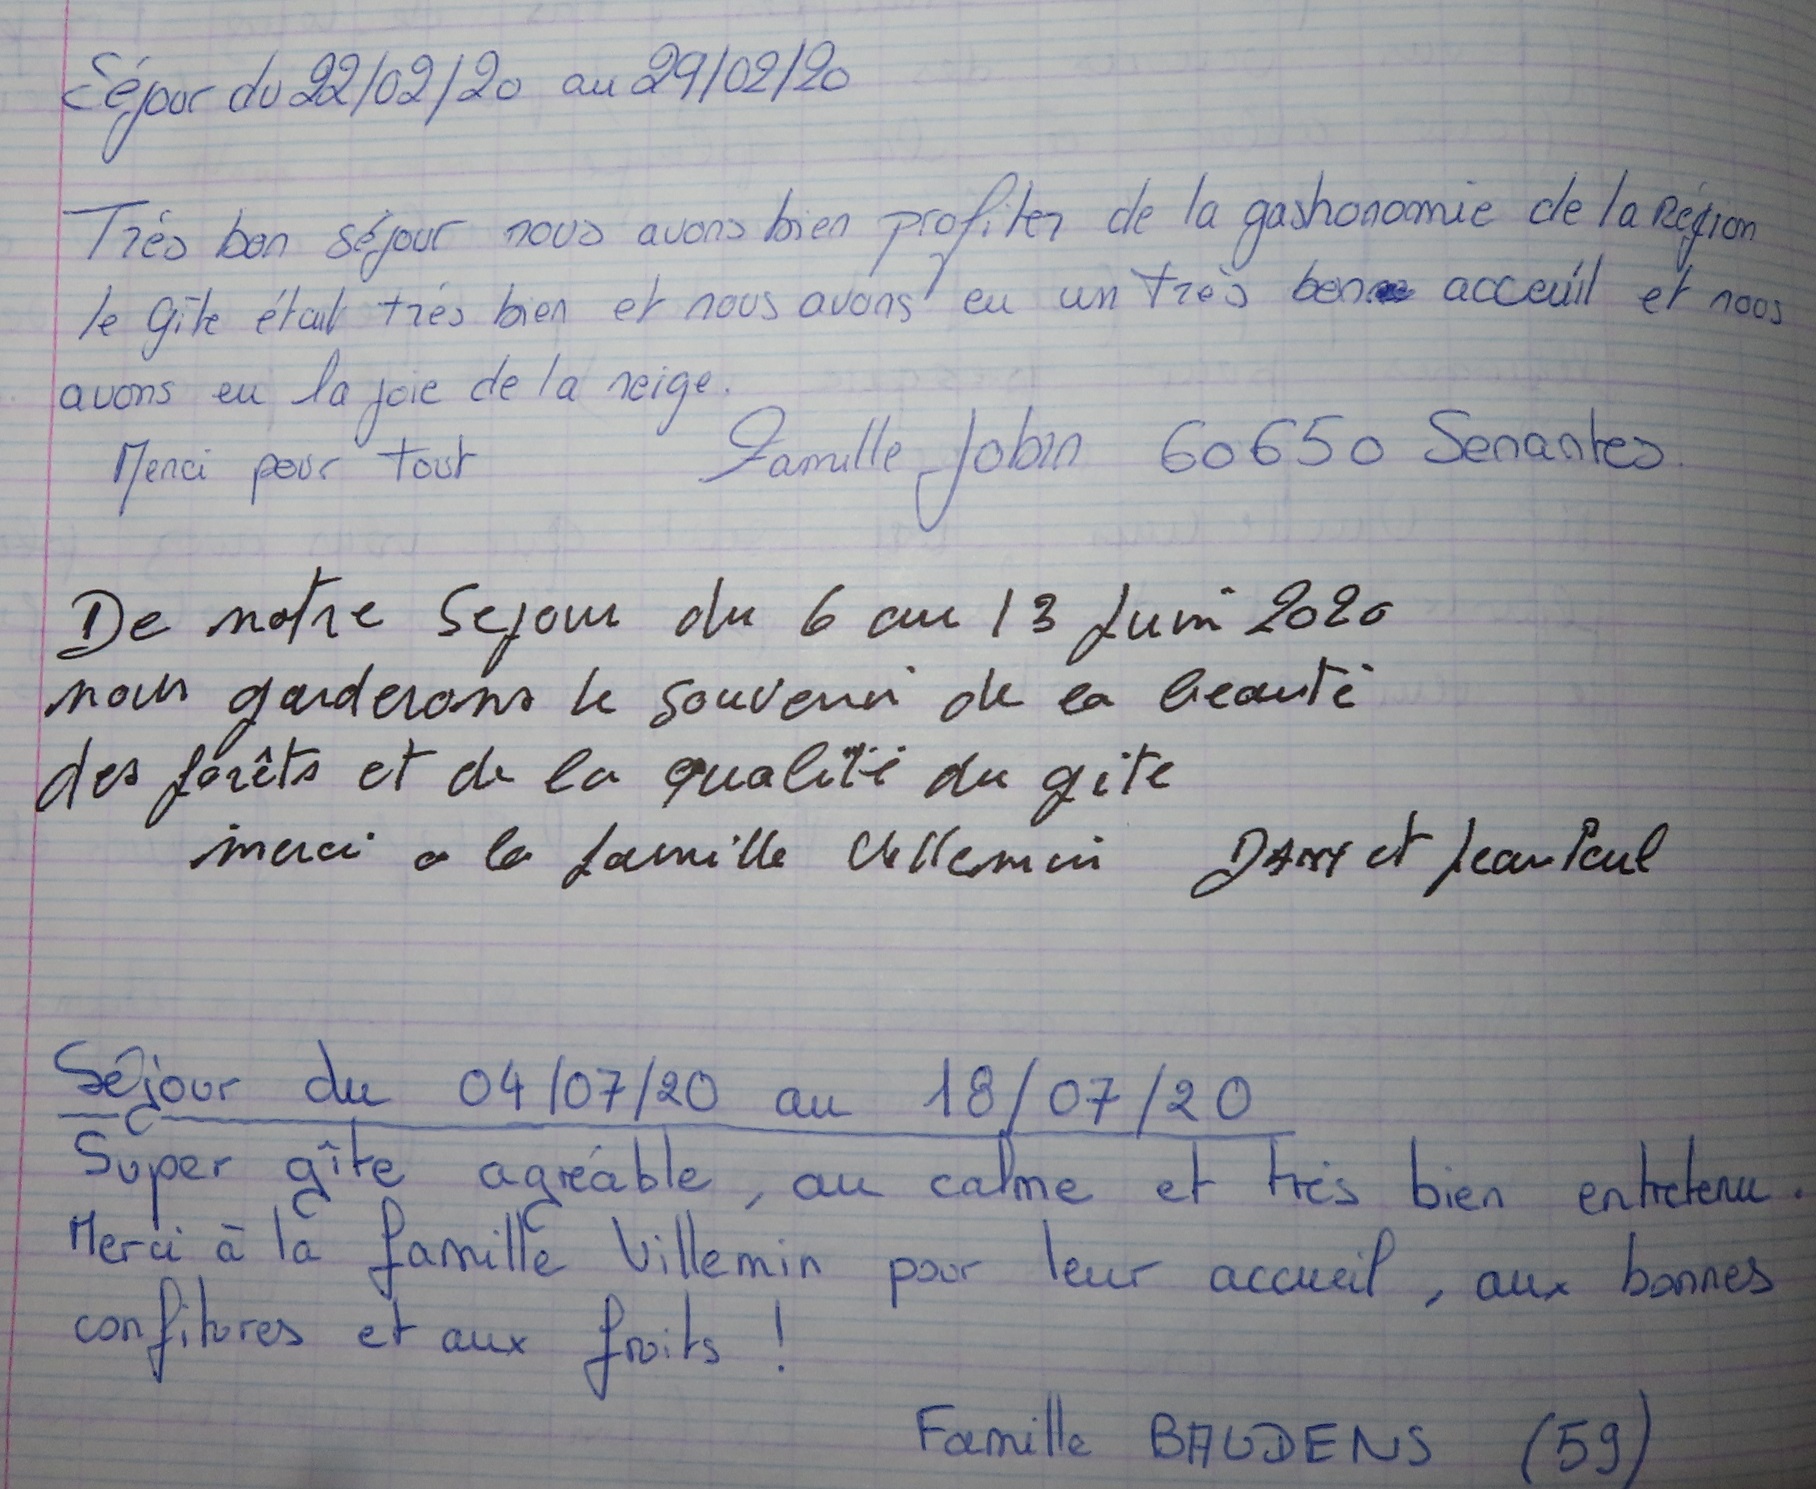 Séjour du 22/02/20 au 29/02/20
Trés bon séjour nous avons bien profiter de la gastronomie de la Région
le Gîte était trés bien et nous avons eu un très bon acceuil et nous
avons eu la joie de la neige.
Merci pour tout Famille Jobin 60650 Senantes.
De notre Sejour du 6 au 13 Juin 2020
nous garderons le souvenir de la beauté
des forêts et de la qualité du gite
merci a la famille Villemin DANY et Jean Paul
Séjour du 04/07/20 au 18/07/20
Super gîte agréable, au calme et très bien entretenu.
Merci à la famille Villemin pour leur accueil, aux bonnes
confitures et aux fruits !
Famille BAUDENS (59)